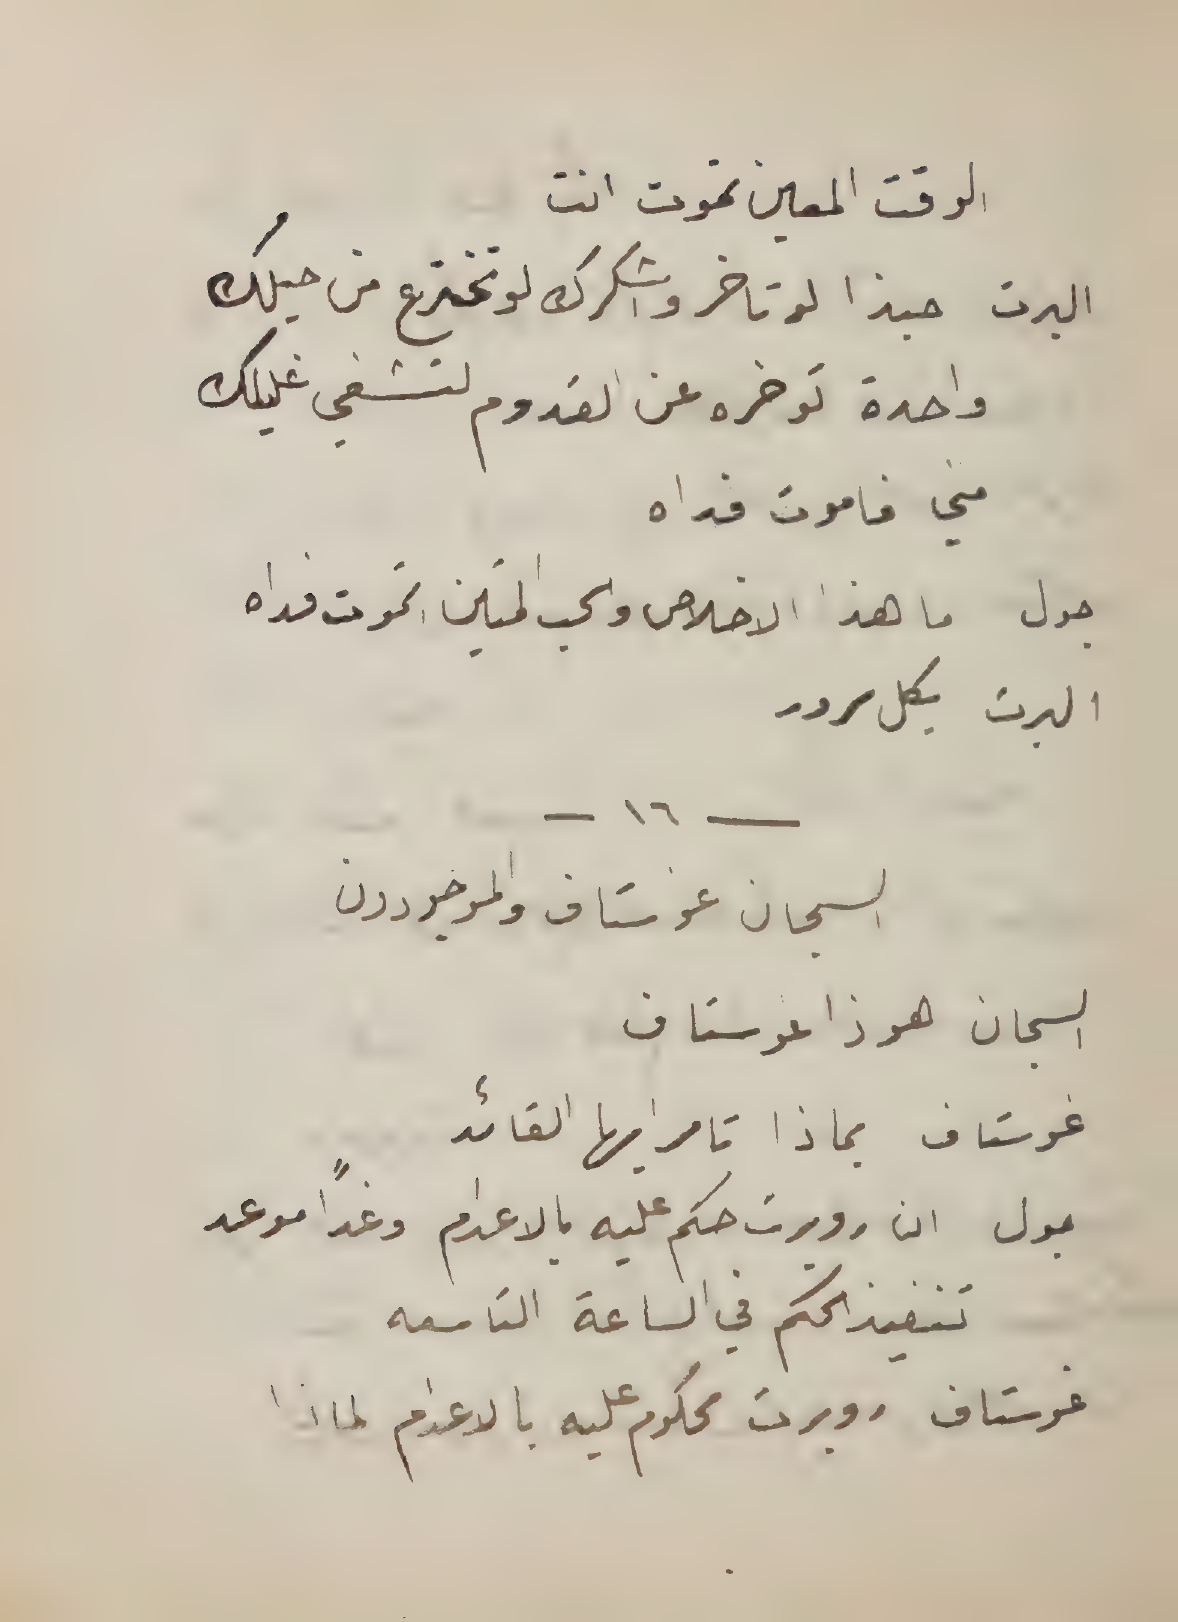 الوقت المعين تموت انت
البرت حبذا لو تاخر واشكرك لو تخترع من حيلك
واحدة توخره عن القدوم لتشفي غليلك
مني فاموت فداه
جول ما هذا الاخلاص والحب المتين اتموت فداه
البرت بكل سرور
— ١٦ —
السجان غوستاف والموجودون
السجان هوذا غوستاف
غوستاف بماذا تامر ايها القائد
جول ان روبرت حكم عليه بالاعدام وغداً موعد
تنفيذ الحكم في الساعة التاسعه
غوستاف روبرت محكوم عليه بالاعدام لماذا